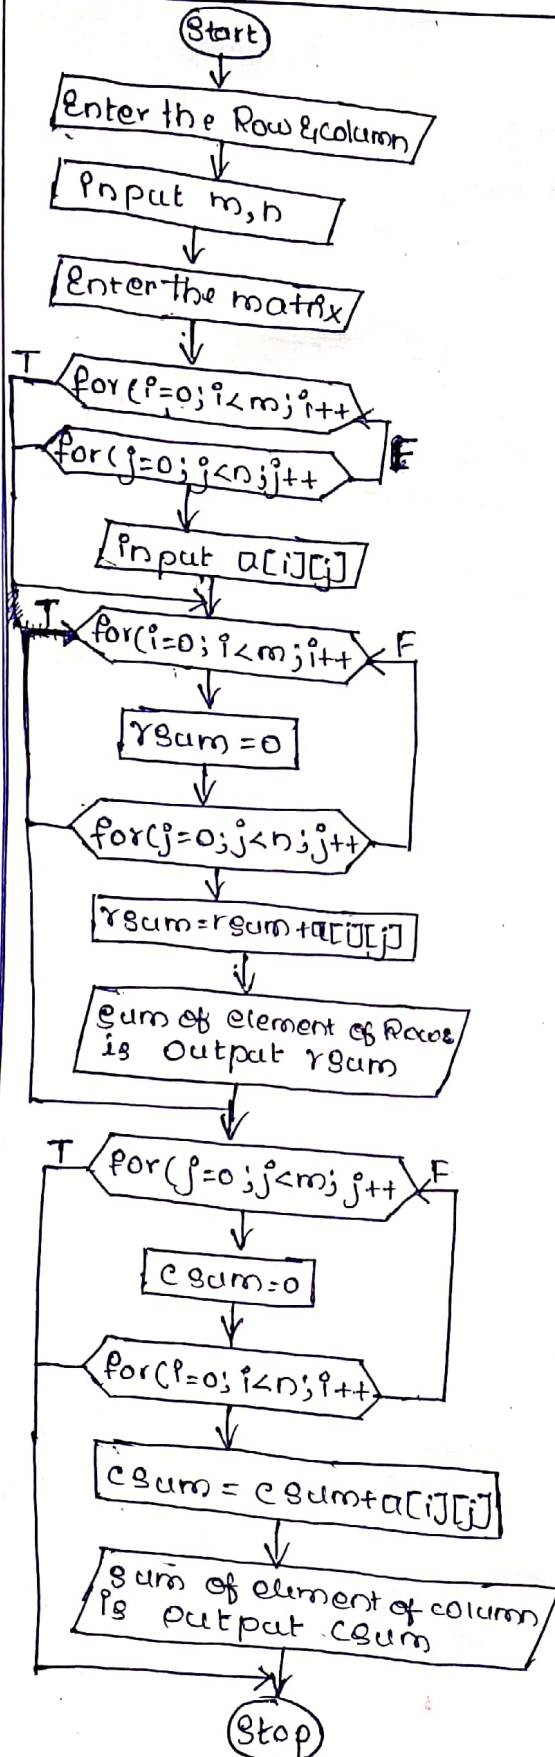 Start
Enter the Row & column
input m,n
Enter the matrix
T
for(i=0; i<m; i++
for(j=0; j<n; j++
F
input a[i][j]
T
for(i=0; i<m; i++
F
rsum=0
for(j=0; j<n; j++
rsum=rsum+a[i][j]
sum of element of Rows
is output rsum
T
for(j=0; j<m; j++
F
csum=0
for(i=0; i<n; i++
csum = csum+a[i][j]
sum of element of column
is output csum
Stop